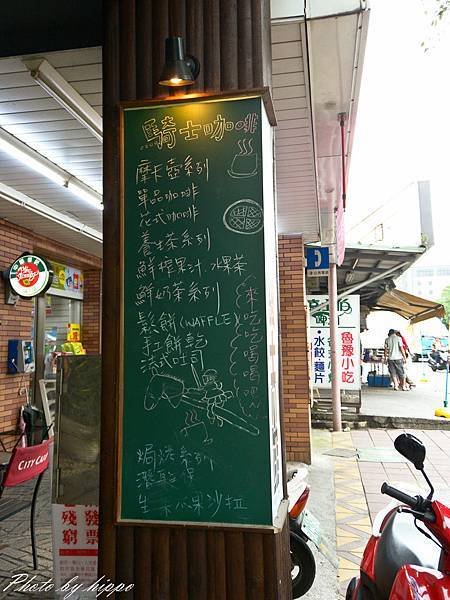 騎士咖啡
摩卡壺系列
單品咖啡
花式咖啡
養生茶系列
鮮榨果汁.水果茶
鮮奶茶系列
鬆餅(WAFFLE)
手工餅乾
法式吐司
來吃吃喝喝吧
焗烤系列
生菜水果沙拉
CITY CAFE
殘發
窮票
·水餃·麵片
魯豫小吃
Photo by hippo